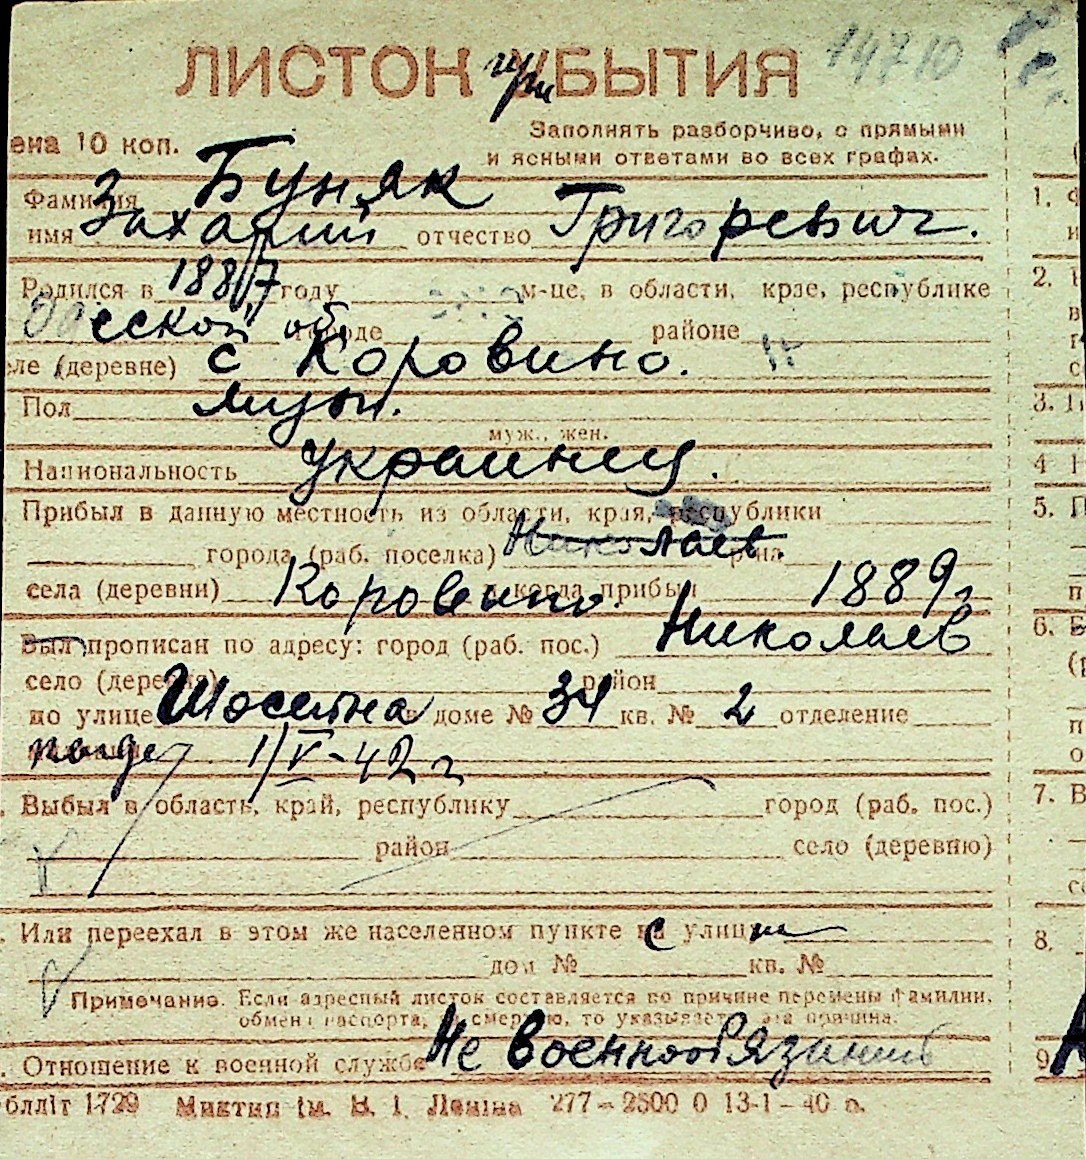 ЛИСТОК УБЫТИЯ 14710
при
ена 10 коп.
Заполнять разборчиво, с прямыми
и ясными ответами во всех графах.
Фамилия Буняк
имя Захарий отчество Григоревич.
Родился в 1887 году м-це, в области, крае, республике
Одесской об. городе районе
ле (деревне) с Коровино.
Пол мужч.
муж., жен.
Национальность украинец.
Прибыл в данную местность из области, края, республики
города (раб. поселка) Николаев р-на
села (деревни) Коровино. и когда прибыл 1889 г
Был прописан по адресу: город (раб. пос.) Николаев
село (деревня) район
по улице Шосейна в доме № 34 кв. № 2 отделение
1/V-42 г
Выбыл в область, край, республику город (раб. пос.)
район село (деревню)
Или переехал в этом же населенном пункте с улицы
дом № кв. №
Примечание. Если адресный листок составляется по причине перемены фамилии,
обмена паспорта, за смертью, то указывается эта причина.
Отношение к военной службе Не военнообязаный
бллiт 1729 Миктип iм. В. I. Ленiна 277—2500 0 13-1-40 р.
1.
2.
3.
4
5.
6.
7.
8.
9